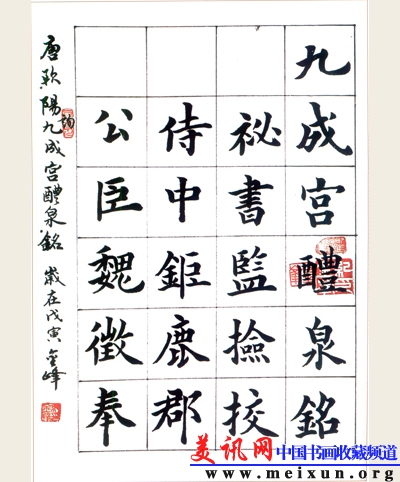 九成宫醴泉銘
祕書監撿挍
侍中鉅鹿郡
公臣魏徵奉
唐欧陽九成宫醴泉銘 歲在戊寅 金峰
美讯网 中国书画收藏频道
www.meixun.org